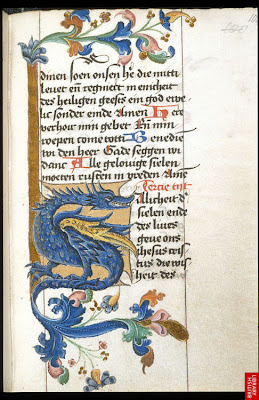 dinen soen onsen hē die mitti
leuet eñ regneert in enicheit
des heiligen geests ein god ewe
lic sonder ende Amen Here
verhoir min gebet Eñ min
roepen come totti Benedie
wi den heer Gade seggen wi
danc Alle gelouige sielen
moeten rusten in vreden Ame
Tercie tijt
ullicheit d'
sielen ende
des liues
geue ons
ihesus cris
tus die wis
heit des
BRITISH
LIBRARY